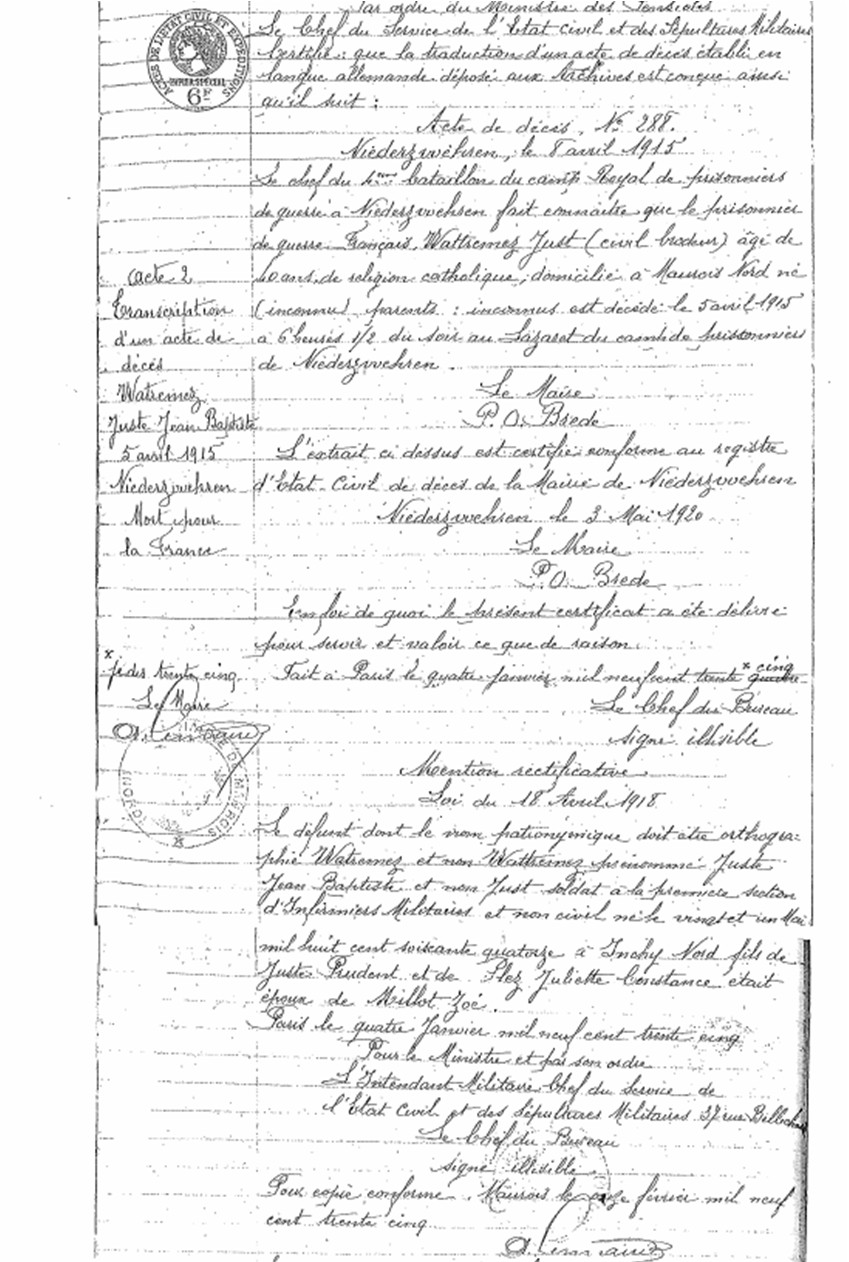 Par ordre du Ministre des Pensions
Le Chef du Service de l'Etat civil et des Sépultures Militaires
Certifie : que la traduction d'un acte de décès établi en
langue allemande déposé aux Archives est conçue ainsi
qu'il suit :
ACTES DE L'ETAT CIVIL ET EXPEDITIONS
PAPIER SPECIAL
6F
Acte de décès, No 288.
Niederzwehren, le 8 avril 1915
Le chef du 4ème bataillon du camp Royal de prisonniers
de guerre à Niederzwehren fait connaitre que le prisonnier
de guerre Français, Wattremez Just (civil brodeur) âgé de
40 ans, de religion catholique, domicilié à Maurois Nord né
(inconnu) parents : inconnus est décédé le 5 avril 1915
à 6 heures 1/2 du soir au Lazaret du camp de prisonniers
de Niederzwehren.
Acte 2
Transcription
d'un acte de
décès
Watremez
Juste Jean Baptiste
5 avril 1915
Niederzwehren
Mort pour
la France
Le Maire
P.O. Brede
L'extrait ci dessus est certifié conforme au registre
d'Etat Civil de décès de la Mairie de Niederzwehren
Niederzwehren le 3 Mai 1920
Le Maire
P.O. Brede
En foi de quoi le présent certificat a été délivré
pour servir et valoir ce que de raison.
Fait à Paris le quatre Janvier mil neuf cent trente x cinq
x
trente cinq
Le Maire
Le Chef du Bureau
signé illisible
Mention rectificative
Loi du 18 Avril 1918
Le défunt dont le nom patronymique doit être orthogra-
phié Watremez et non Wattremez prénommé Juste
Jean Baptiste et non Just soldat à la première section
d'Infirmiers Militaires et non civil né le vingt et un Mai
mil huit cent soixante quatorze à Inchy Nord fils de
Juste Prudent et de Slez Juliette Constance était
époux de Millot Zoé.
Paris le quatre Janvier mil neuf cent trente cinq
Pour le Ministre et par son ordre
L'Intendant Militaire Chef du Service de
l'Etat Civil et des Sépultures Militaires 37 rue Bellechasse
Le Chef du Bureau
signé illisible
Pour copie conforme. Maurois le onze février mil neuf
cent trente cinq